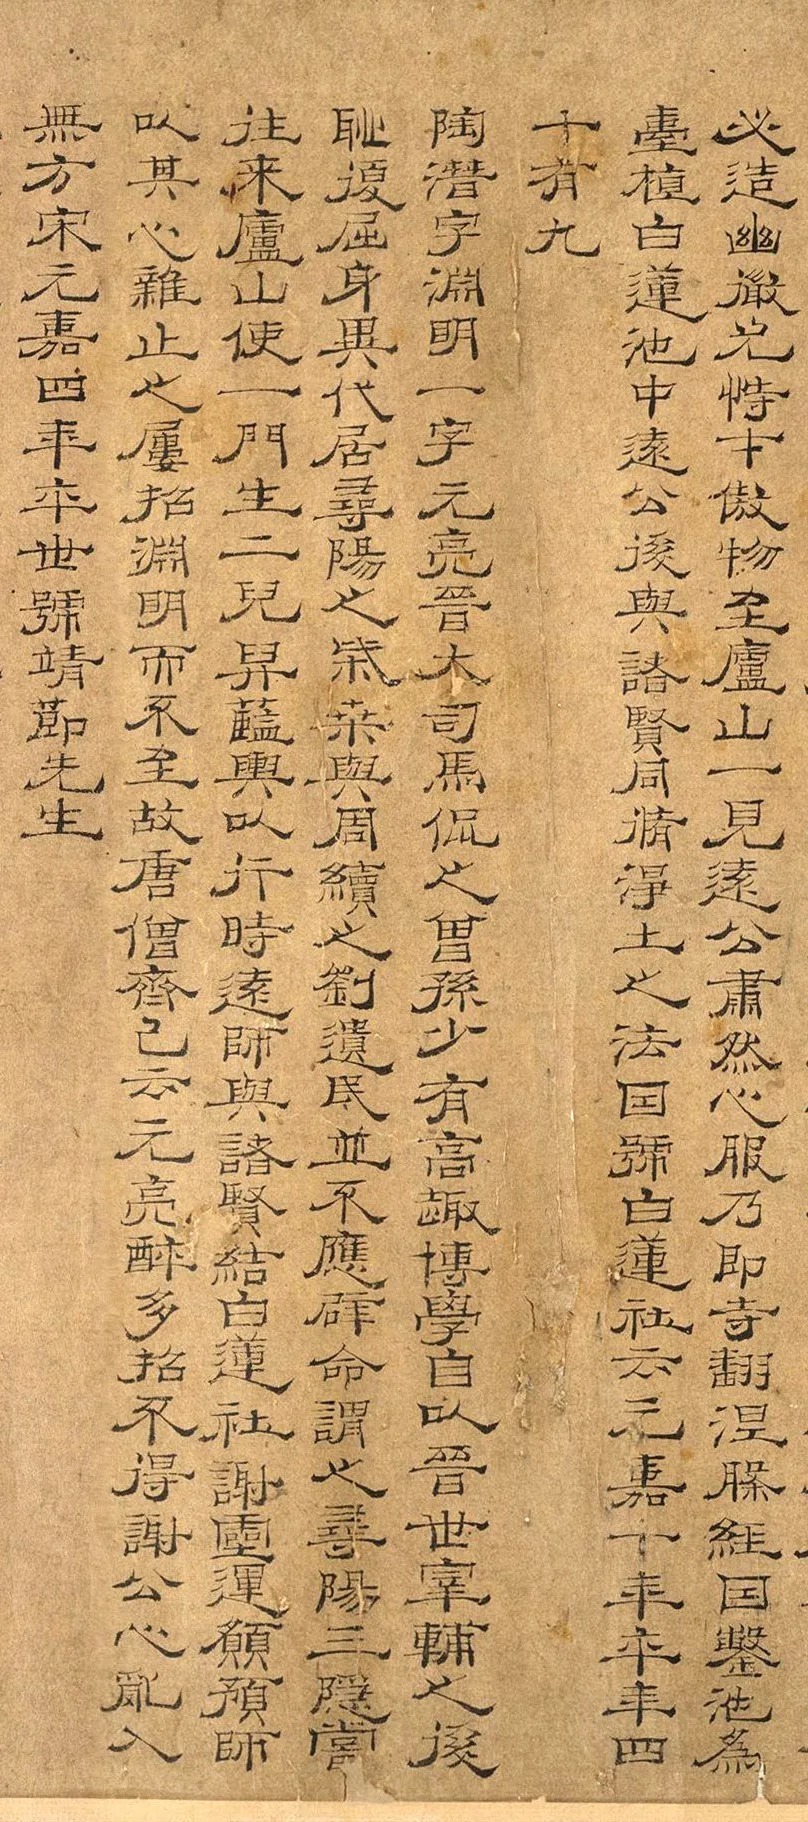 必造幽徹尤恃才傲物至廬山一見遠公肅然心服乃即寺翻涅槃經因鑿池為
臺植白蓮池中遠公後與諸賢同脩淨土之法因號白蓮社云元嘉十年卒年四
十有九
陶潛字淵明一字元亮晉大司馬侃之曾孫少有高趣博學自以晉世宰輔之後
恥復屈身異代居尋陽之柴桒與周續之劉遺民並不應辟命謂之尋陽三隱嘗
往来廬山使一門生二兒舁藍輿以行時遠師與諸賢結白蓮社謝靈運願預師
以其心雜止之屢招淵明而不至故唐僧齊己云元亮醉多招不得謝公心亂入
無方宋元嘉四年卒世號靖節先生